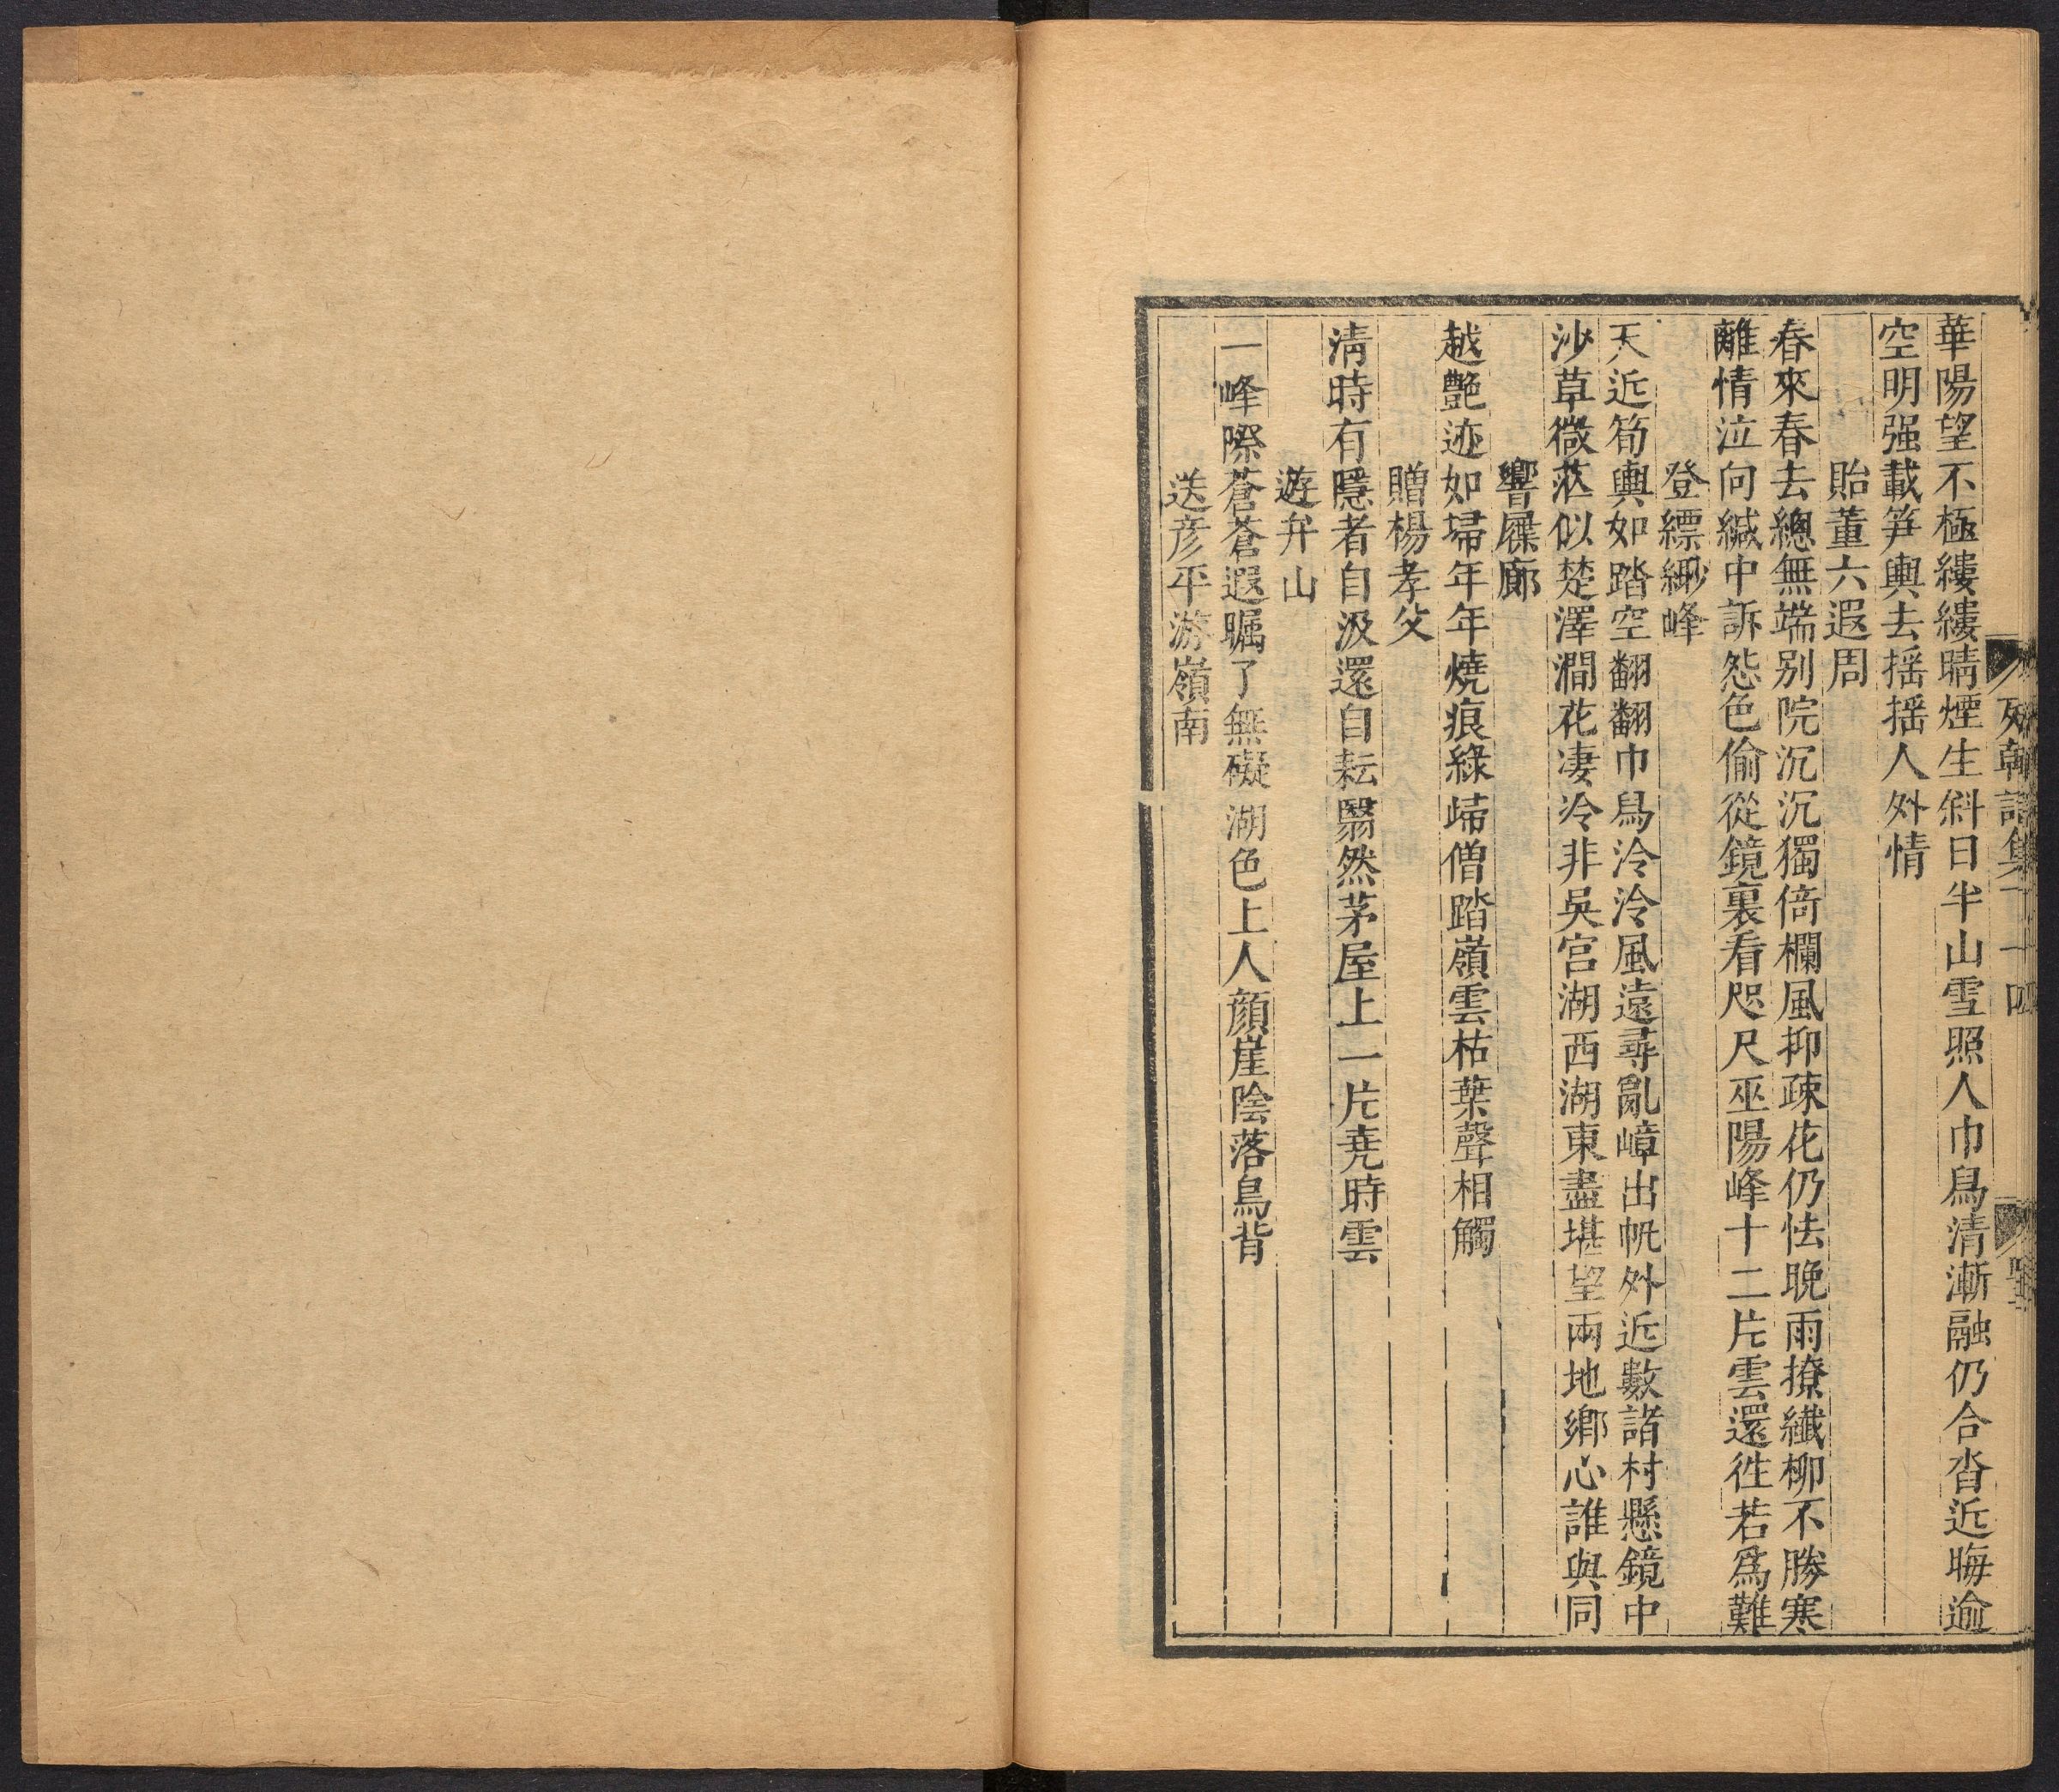 列朝詩集丁十四
華陽望不極縷縷晴煙生斜日半山雪照人巾舄清漸融仍合沓近晦逾
空明强載笋輿去揺揺人外情
貽董六遐周
春來春去總無端别院沉沉獨倚欄風抑疎花仍怯晚雨撩纖柳不勝寒
離情泣向緘中訴怨色偷從鏡裏看咫尺巫陽峰十二片雲還徃若爲難
登縹緲峰
天近筍輿如踏空翻翻巾舄泠泠風遠尋亂嶂出帆外近數諸村懸鏡中
沙草微茫似楚澤澗花凄冷非吳宫湖西湖東盡堪望兩地鄉心誰與同
響屧廊
越艷迹如掃年年燒痕綠歸僧踏嶺雲枯葉聲相觸
贈楊孝父
淸時有隱者自汲還自耘翳然茅屋上一片尭時雲
遊弁山
一峰際蒼蒼遐矚了無礙湖色上人顔崖陰落鳥背
送彦平游嶺南